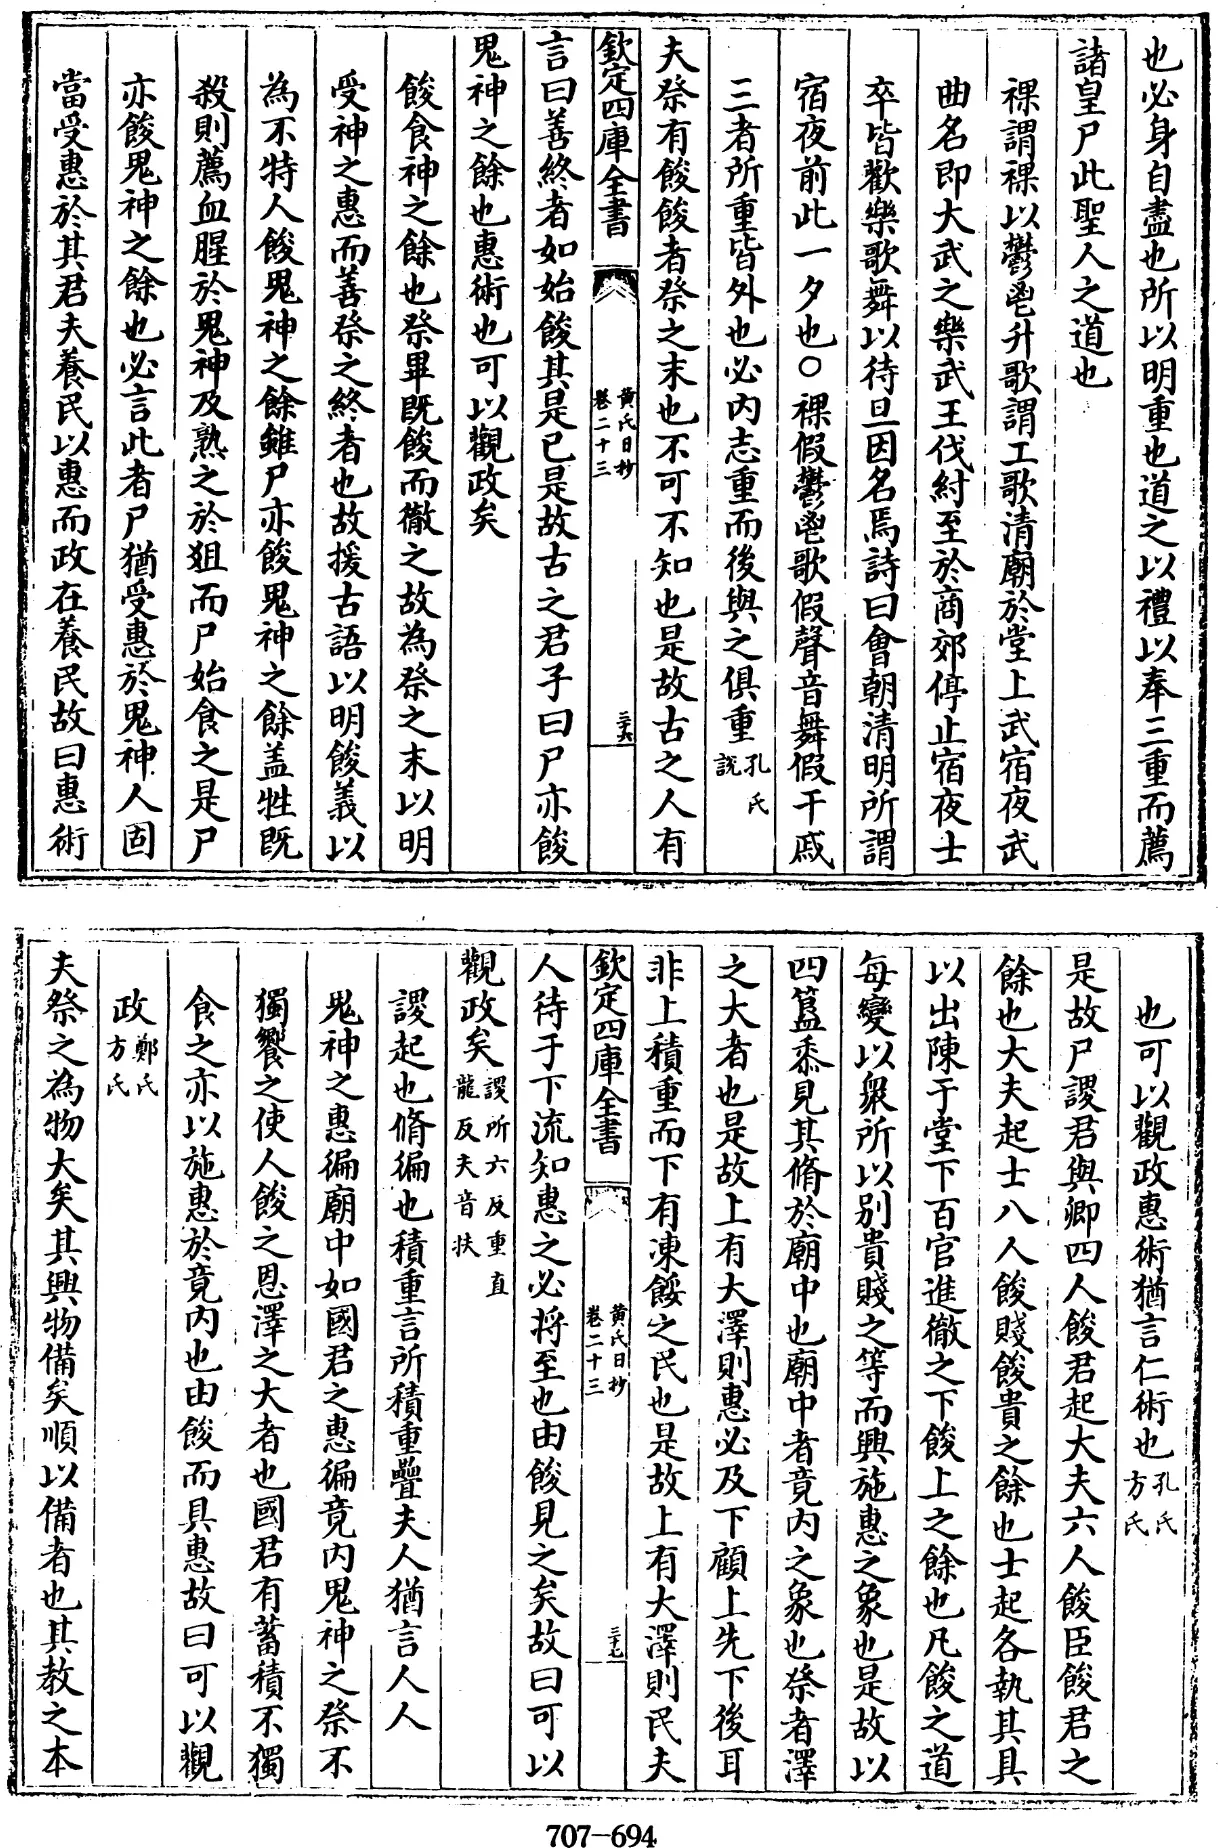 也必身自盡也所以明重也道之以禮以奉三重而薦
諸皇尸此聖人之道也
祼謂祼以鬱鬯升歌謂工歌清廟於堂上武宿夜武
曲名即大武之樂武王伐紂至於商郊停止宿夜士
卒皆歡樂歌舞以待旦因名焉詩曰會朝清明所謂
宿夜前此一夕也○祼假鬱鬯歌假聲音舞假干戚
三者所重皆外也必内志重而後與之俱重孔氏說
夫祭有餕餕者祭之末也不可不知也是故古之人有
欽定四庫全書
黄氏日抄
卷二十三
三十六
言曰善終者如始餕其是已是故古之君子曰尸亦餕
鬼神之餘也惠術也可以觀政矣
餕食神之餘也祭畢既餕而徹之故為祭之末以明
受神之惠而善祭之終者也故援古語以明餕義以
為不特人餕鬼神之餘雖尸亦餕鬼神之餘盖牲既
殺則薦血腥於鬼神及熟之於俎而尸始食之是尸
亦餕鬼神之餘也必言此者尸猶受惠於鬼神人固
當受惠於其君夫養民以惠而政在養民故曰惠術
也可以觀政惠術猶言仁術也孔氏方氏
是故尸謖君與卿四人餕君起大夫六人餕臣餕君之
餘也大夫起士八人餕賤餕貴之餘也士起各執其具
以出陳于堂下百官進徹之下餕上之餘也凡餕之道
每變以衆所以别貴賤之等而興施惠之象也是故以
四簋黍見其脩於廟中也廟中者竟内之象也祭者澤
之大者也是故上有大澤則惠必及下顧上先下後耳
非上積重而下有凍餒之民也是故上有大澤則民夫
欽定四庫全書
黄氏日抄
卷二十三
三十七
人待于下流知惠之必将至也由餕見之矣故曰可以
觀政矣謖所六反重直龍反夫音扶
謖起也脩徧也積重言所積重疊夫人猶言人人
鬼神之惠徧廟中如國君之惠徧竟内鬼神之祭不
獨饗之使人餕之恩澤之大者也國君有蓄積不獨
食之亦以施惠於竟内也由餕而具惠故曰可以觀
政鄭氏方氏
夫祭之為物大矣其興物備矣順以備者也其教之本
707-694